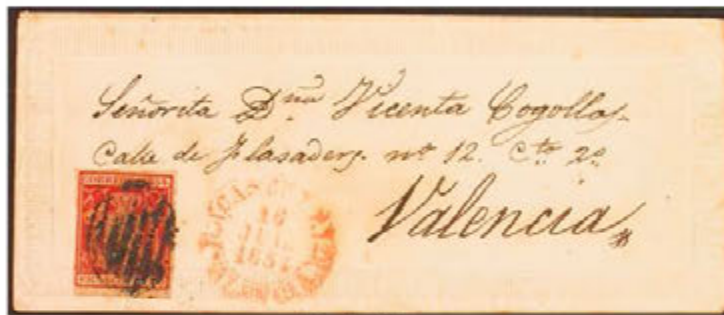 Señorita Dña Vicenta Cogollos
Calle de Flasaders. nº 12. Cto 2º
Valencia
CORREOS